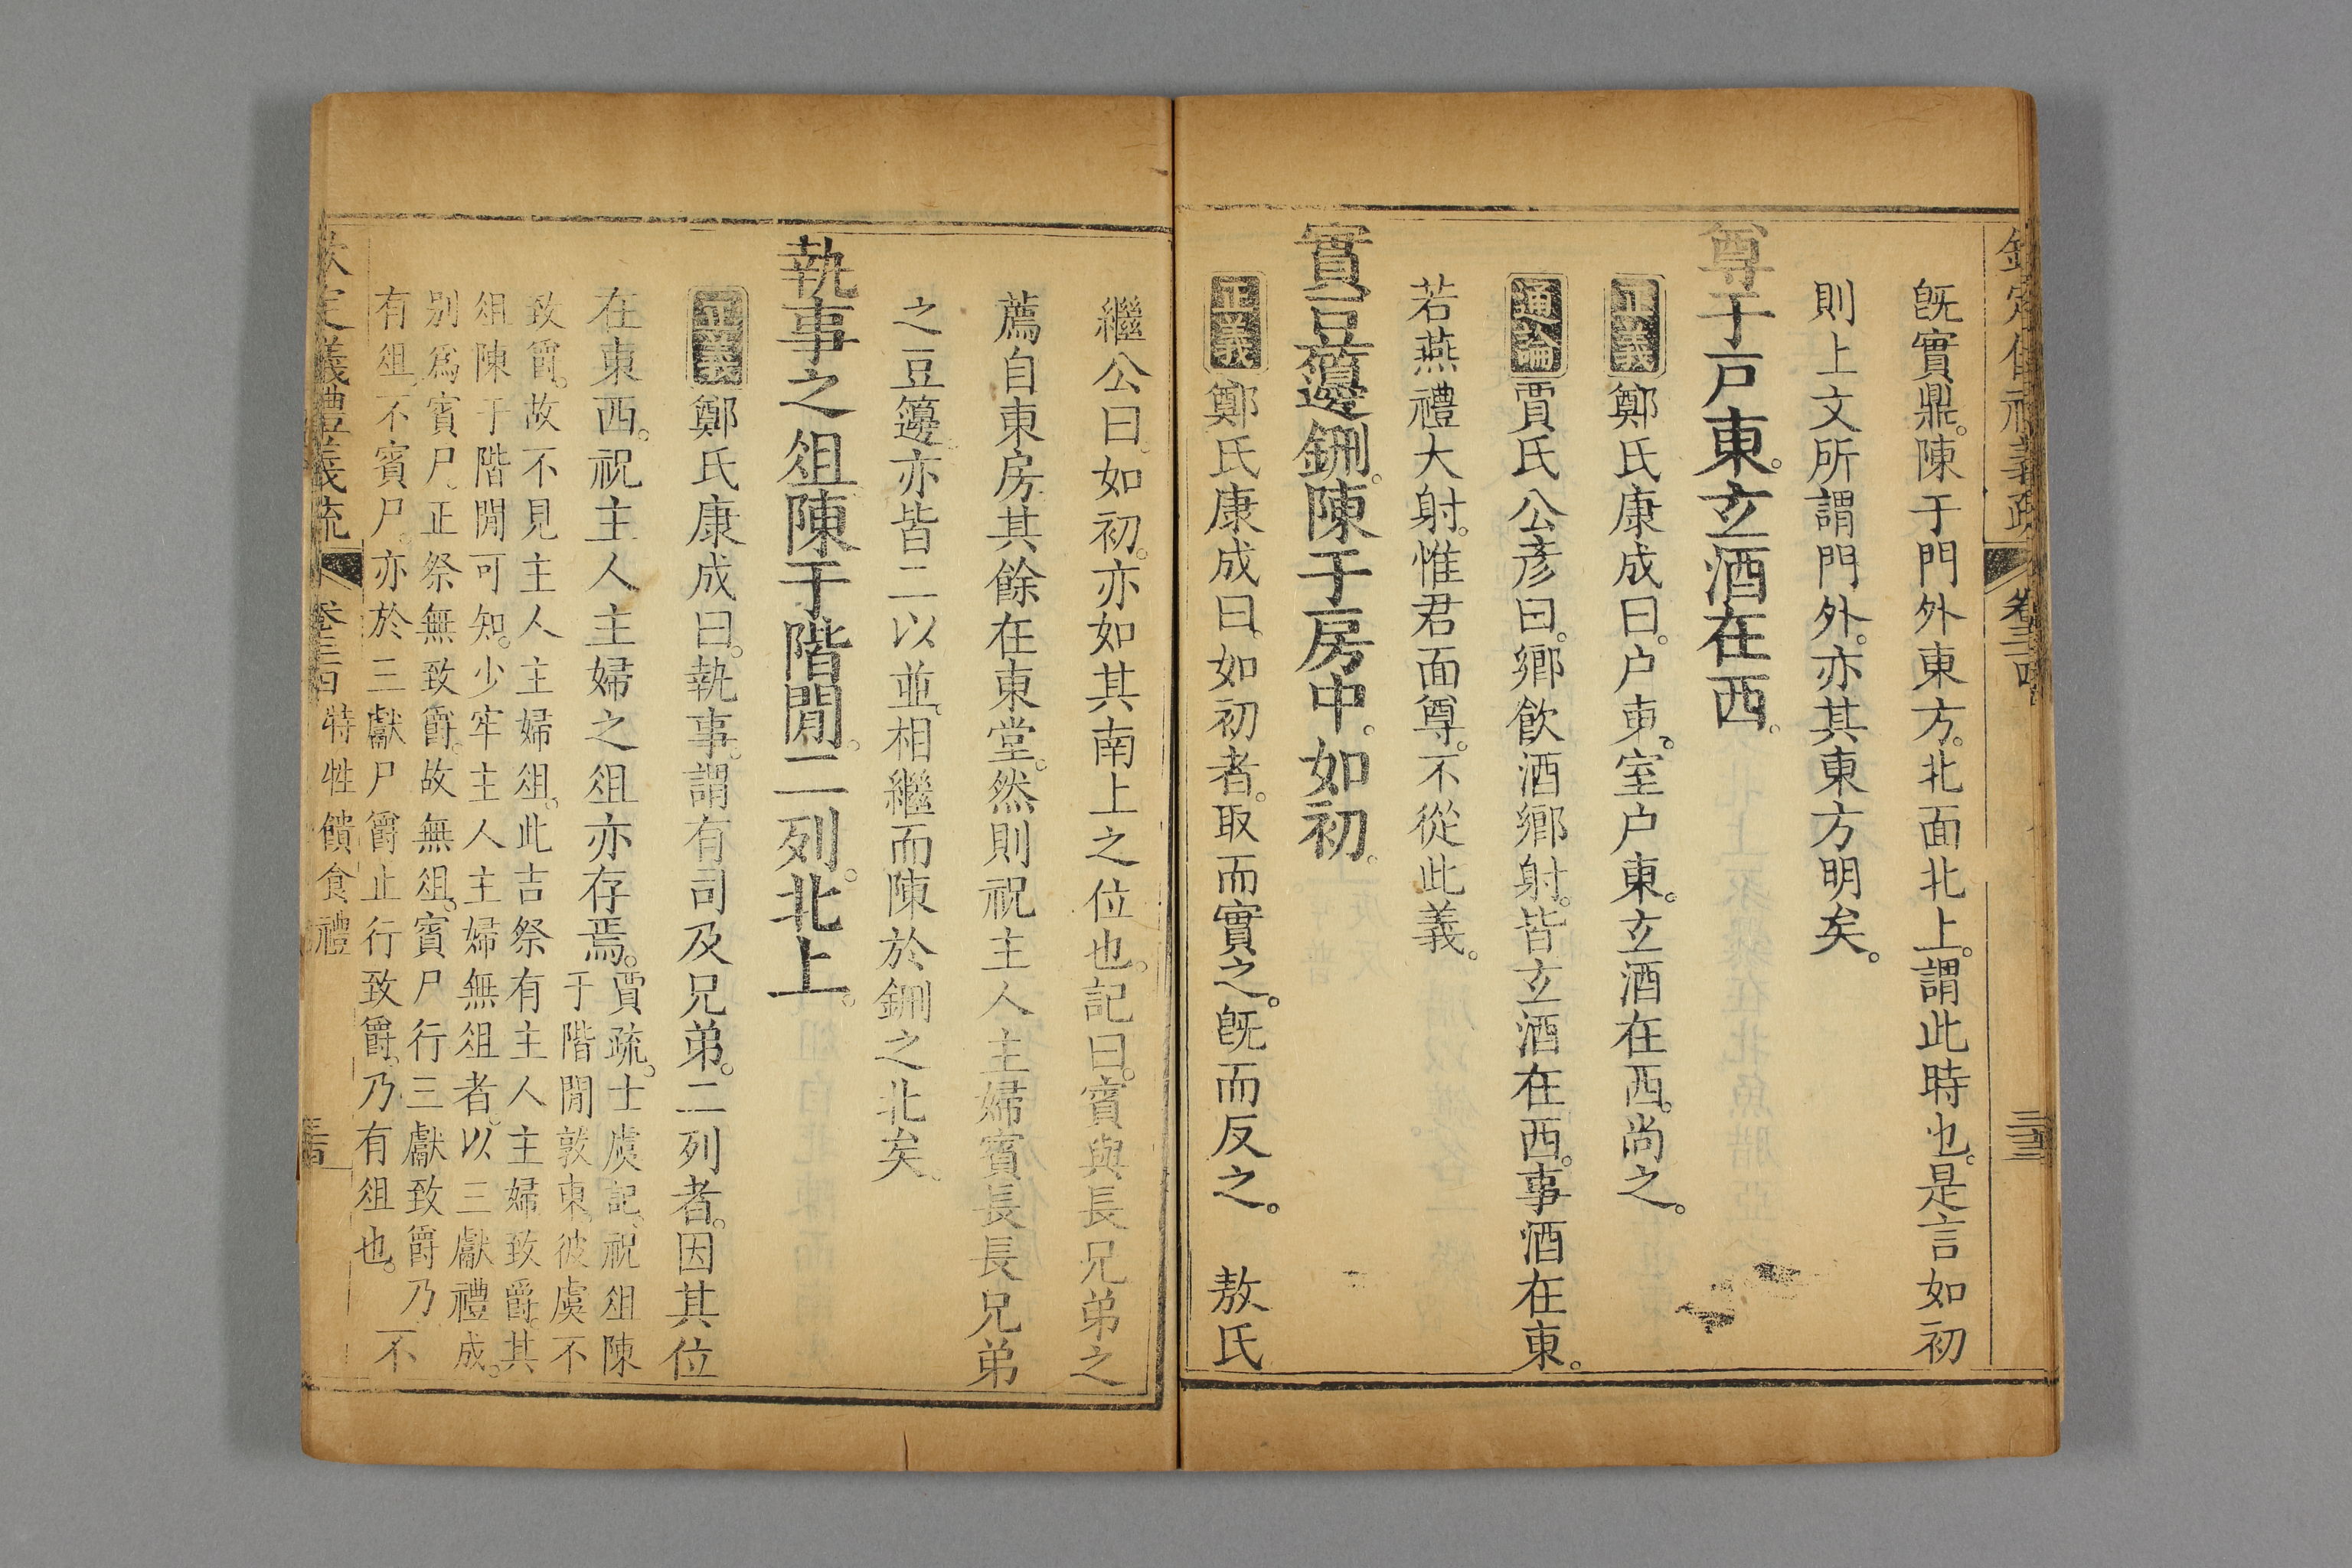 欽定儀禮義疏 卷三十四
既實鼎。陳于門外東方。北面北上。謂此時也。是言如初
則上文所謂門外。亦其東方明矣。
尊于戸東。玄酒在西。
正義 鄭氏康成曰。户東。室户東。玄酒在西。尚之。
通論 賈氏公彥曰。鄉飲酒鄉射。皆玄酒在西。事酒在東。
若燕禮大射。惟君面尊。不從此義。
實豆籩鉶。陳于房中。如初。
正義 鄭氏康成曰。如初者。取而實之。既而反之。 敖氏
繼公曰。如初。亦如其南上之位也。記曰。賓與長兄弟之
薦自東房。其餘在東堂。然則祝主人主婦賓長長兄弟
之豆籩。亦皆二以並。相繼而陳於鉶之北矣。
執事之俎陳于階閒。二列。北上。
正義 鄭氏康成曰。執事。謂有司及兄弟。二列者。因其位
在東西。祝主人主婦之俎亦存焉。賈疏。士虞記。祝俎陳
于階閒敦東。彼虞不
致爵。故不見主人主婦俎。此吉祭有主人主婦致爵。其
俎陳于階閒可知。少牢主人主婦無俎者。以三獻禮成。
别為賓尸。正祭無致爵。故無俎。賓尸行三獻致爵乃
有俎。不賓尸。亦於三獻尸爵止行致爵。乃有俎也。 不
欽定義禮義疏 卷三十四 特牲饋食禮